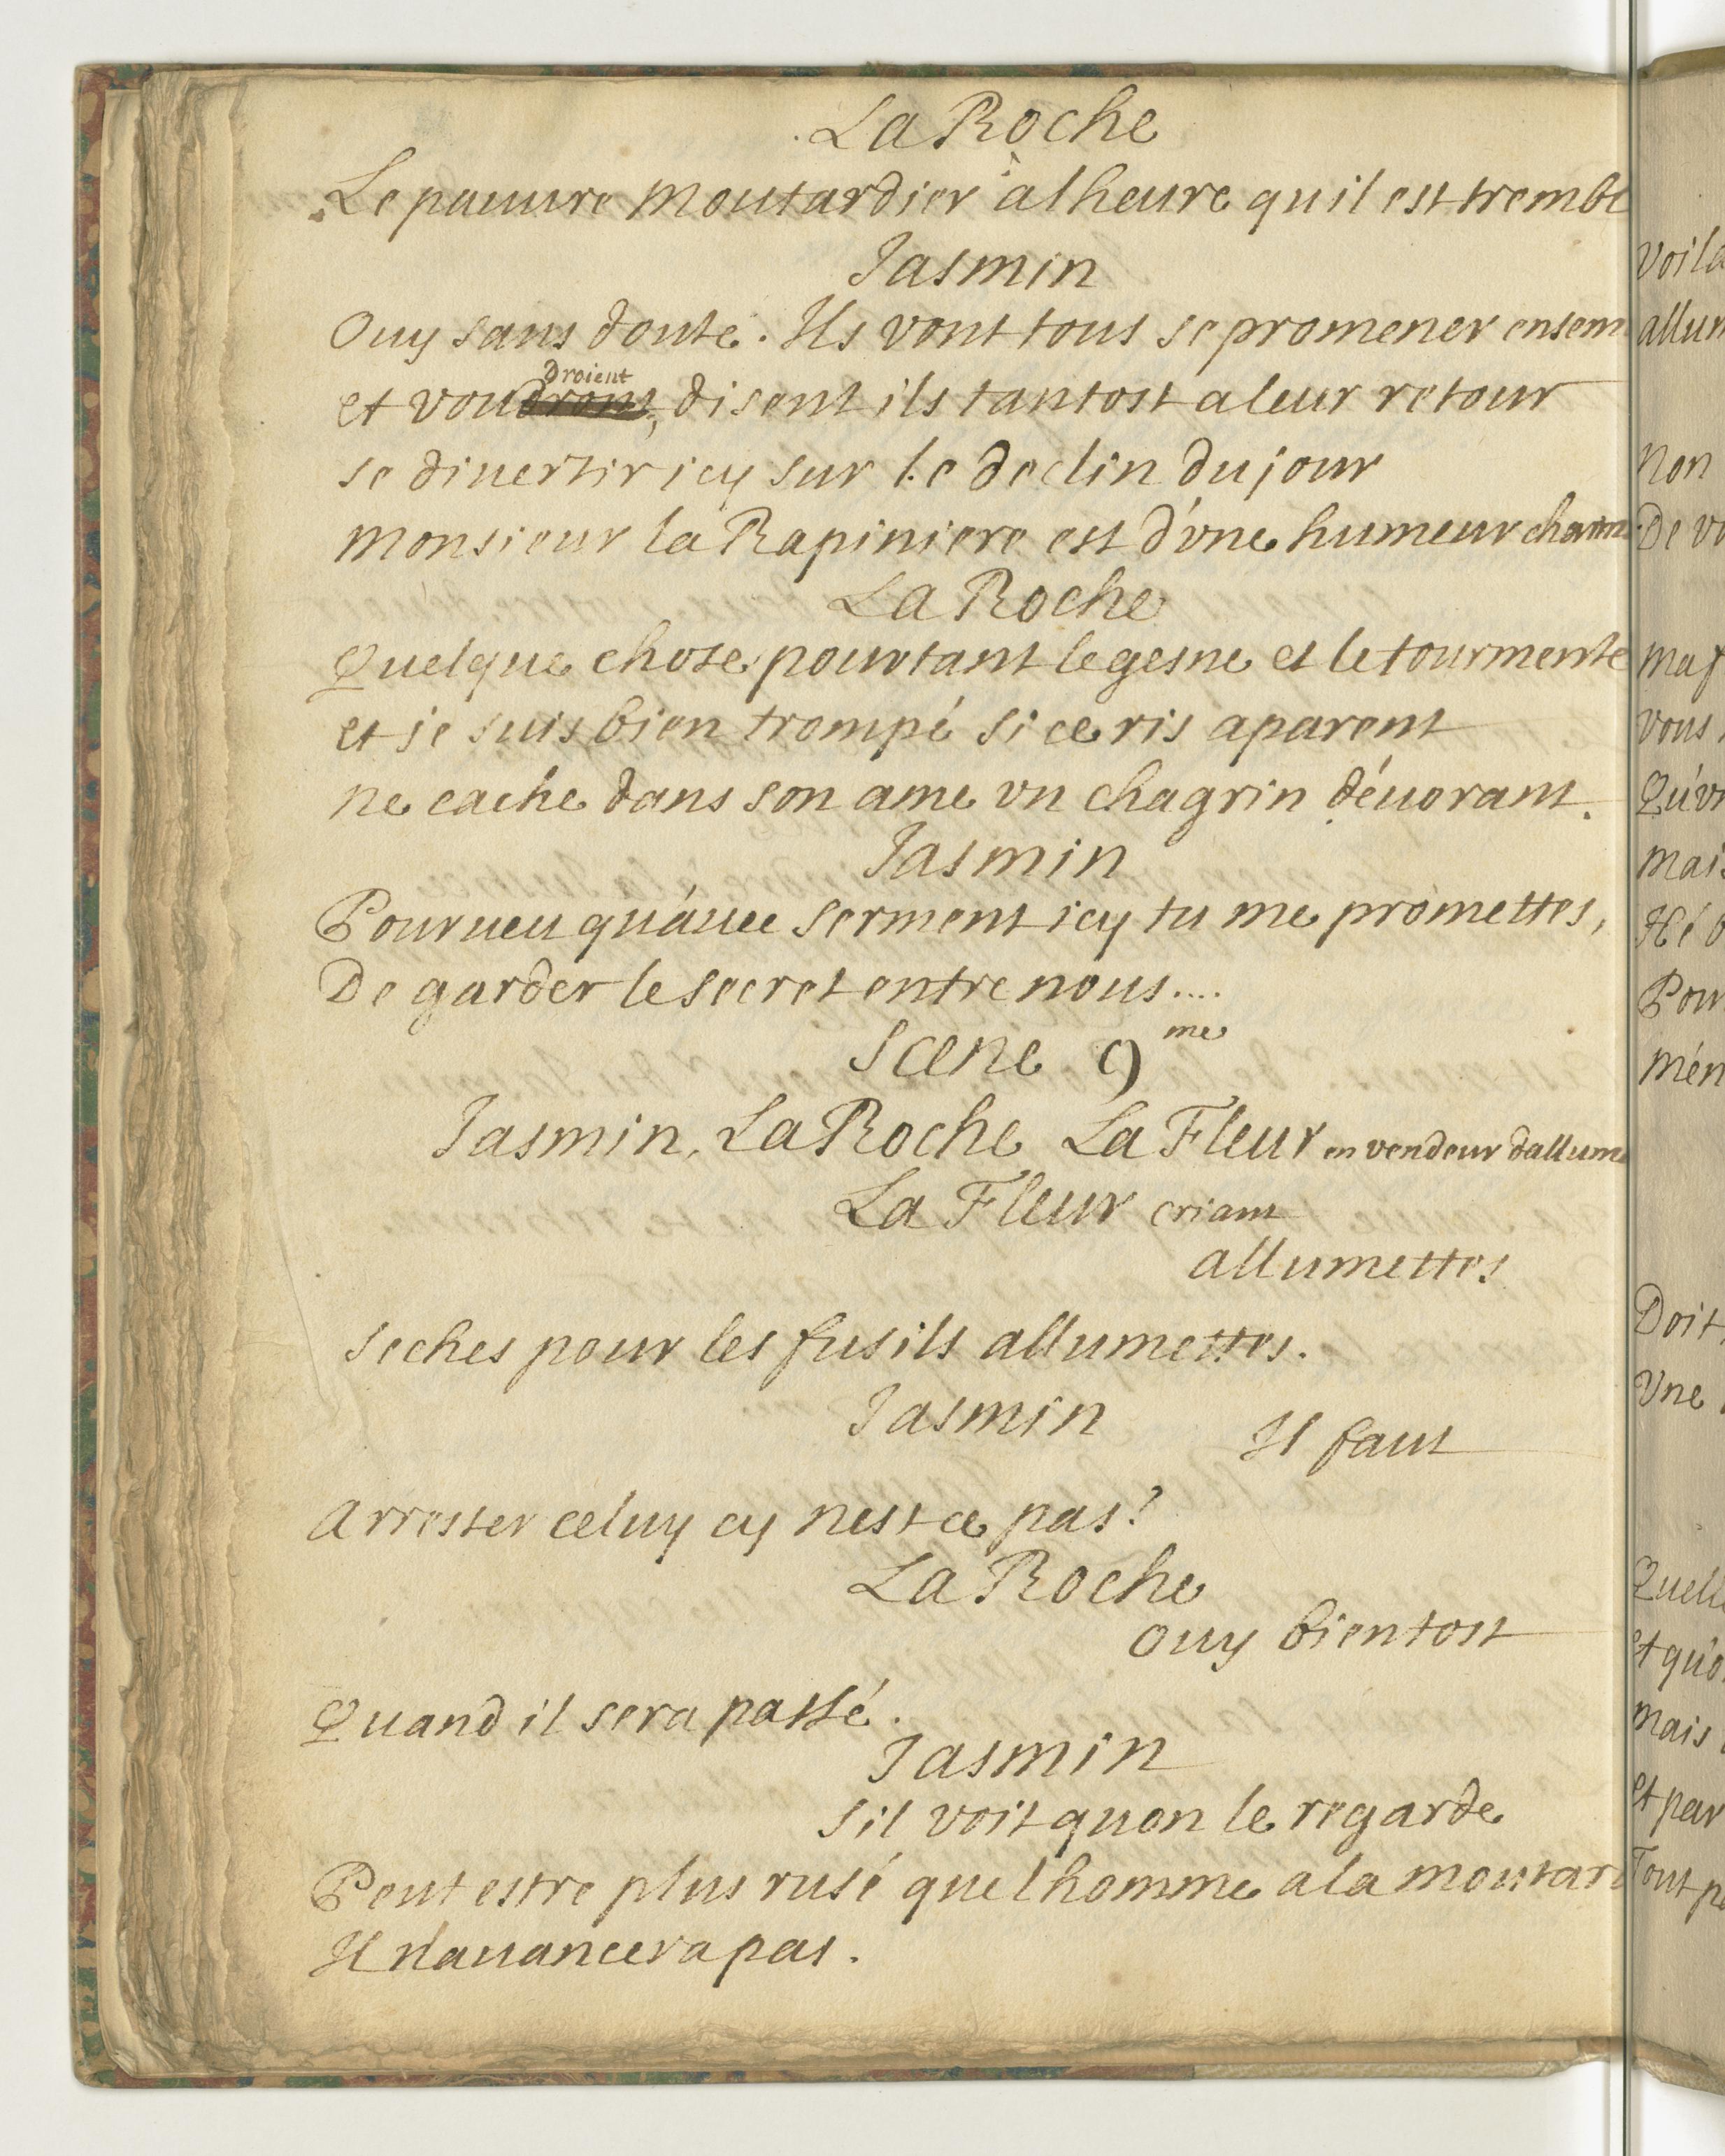 La Roche
Le pauure moutardier à lheure quil est trembl
Jasmin
Ouy sans doute. Ils vont tous se promener ensem
droient
et voudront, disent ils tantost a leur retour
se diuertir icy sur le declin du jour
monsieur la Rapiniere est d'vne humeur charm
La Roche
Quelque chose pourtant le gesne et le tourmente
et je suis bien trompé si ce ris aparent
ne cache dans son ame vn chagrin déuorant.
Jasmin
Pourueu qu'auec serment icy tu me promettes,
De garder le secret entre nous....
Scene 9me
Jasmin, La Roche La Fleur en vendeur dallume
La Fleur criant
allumettes
seches pour les fusils allumettes.
Jasmin
Il faut
Arrester celuy cy nest ce pas?
La Roche
ouy bientost
Quand il sera passé.
Jasmin
sil voit quon le regarde
Peut estre plus rusé que lhomme a la moutar
Il n'auancera pas.
voila
allum
Non
De vo
mas
vous
Qu'vn
mais
Hé b
Pour
m'en
Doit
Vne
Quelle
et quo
mais
et par
Tout pe